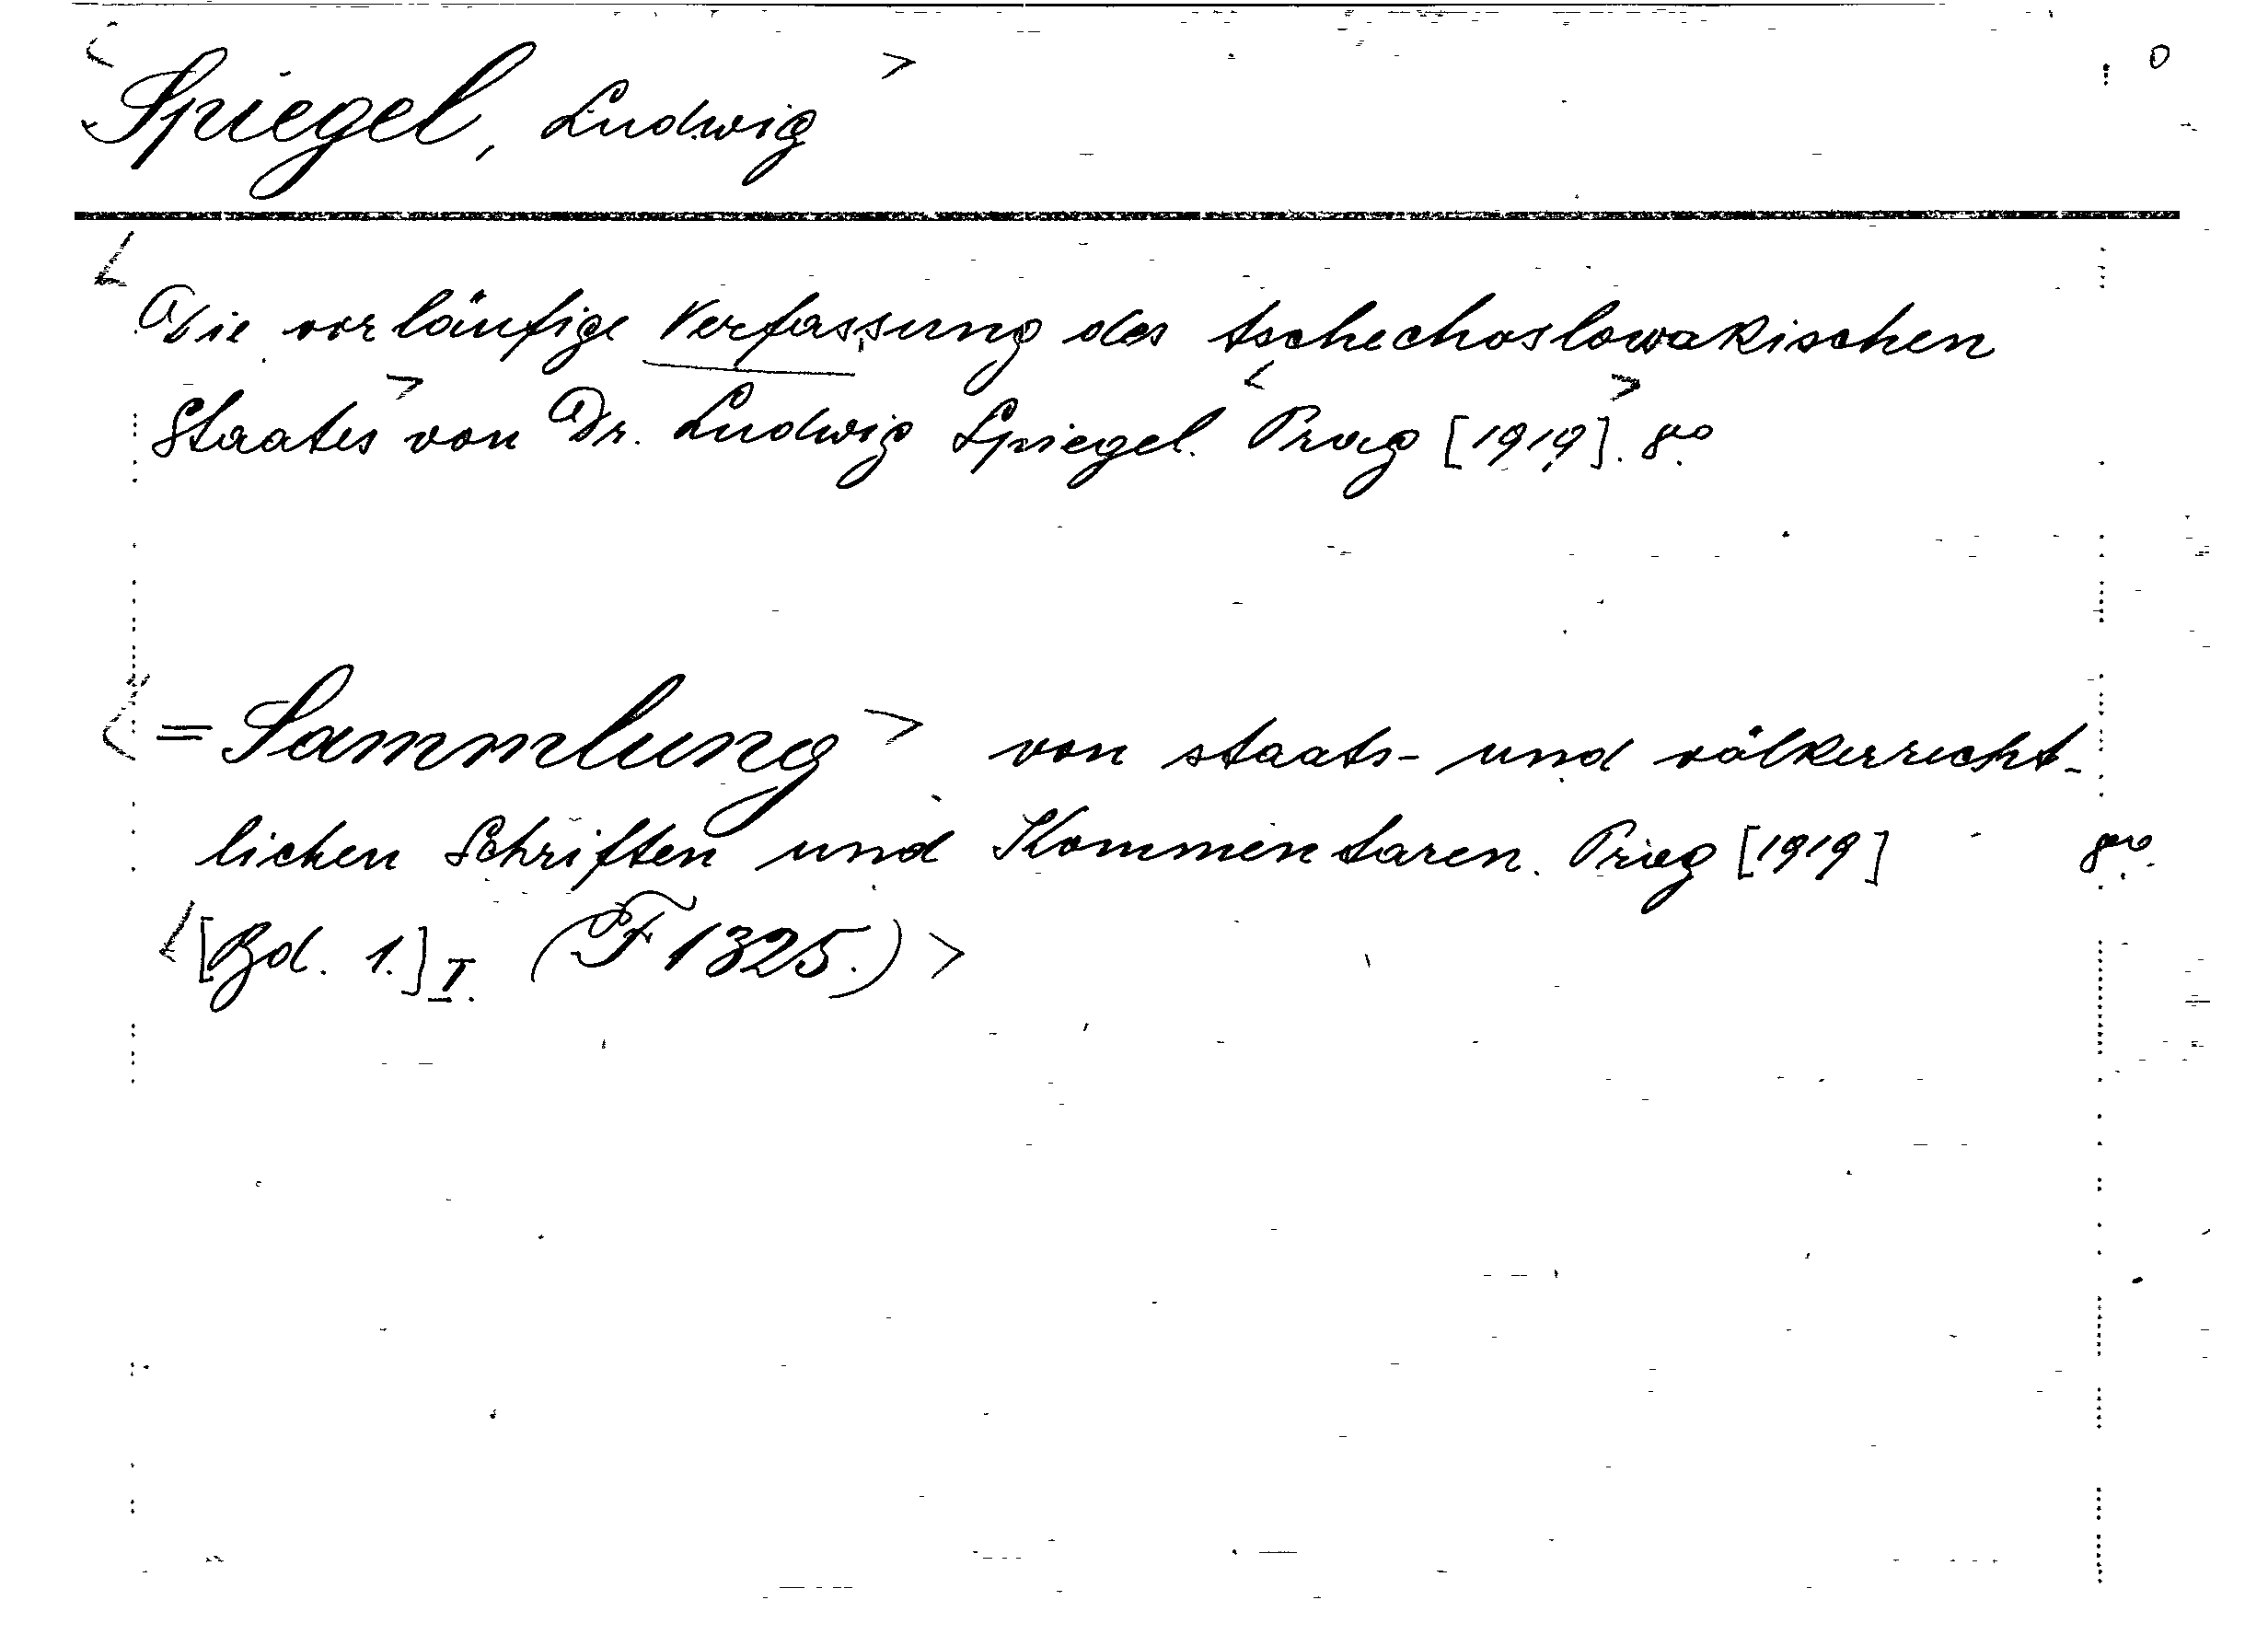 <Spiegel, Ludwig> 0
<Die vorläufige Verfassung des tschechoslowakischen
Staates> von Dr. Ludwig Spiegel. <Prag [1919]>. 8vo.
<=Sammlung> von staats- und völkerrecht-
lichen Schriften und Kommentaren. Prag [1919] 8vo.
<[Bd. 1.] I. (F 1325.)>